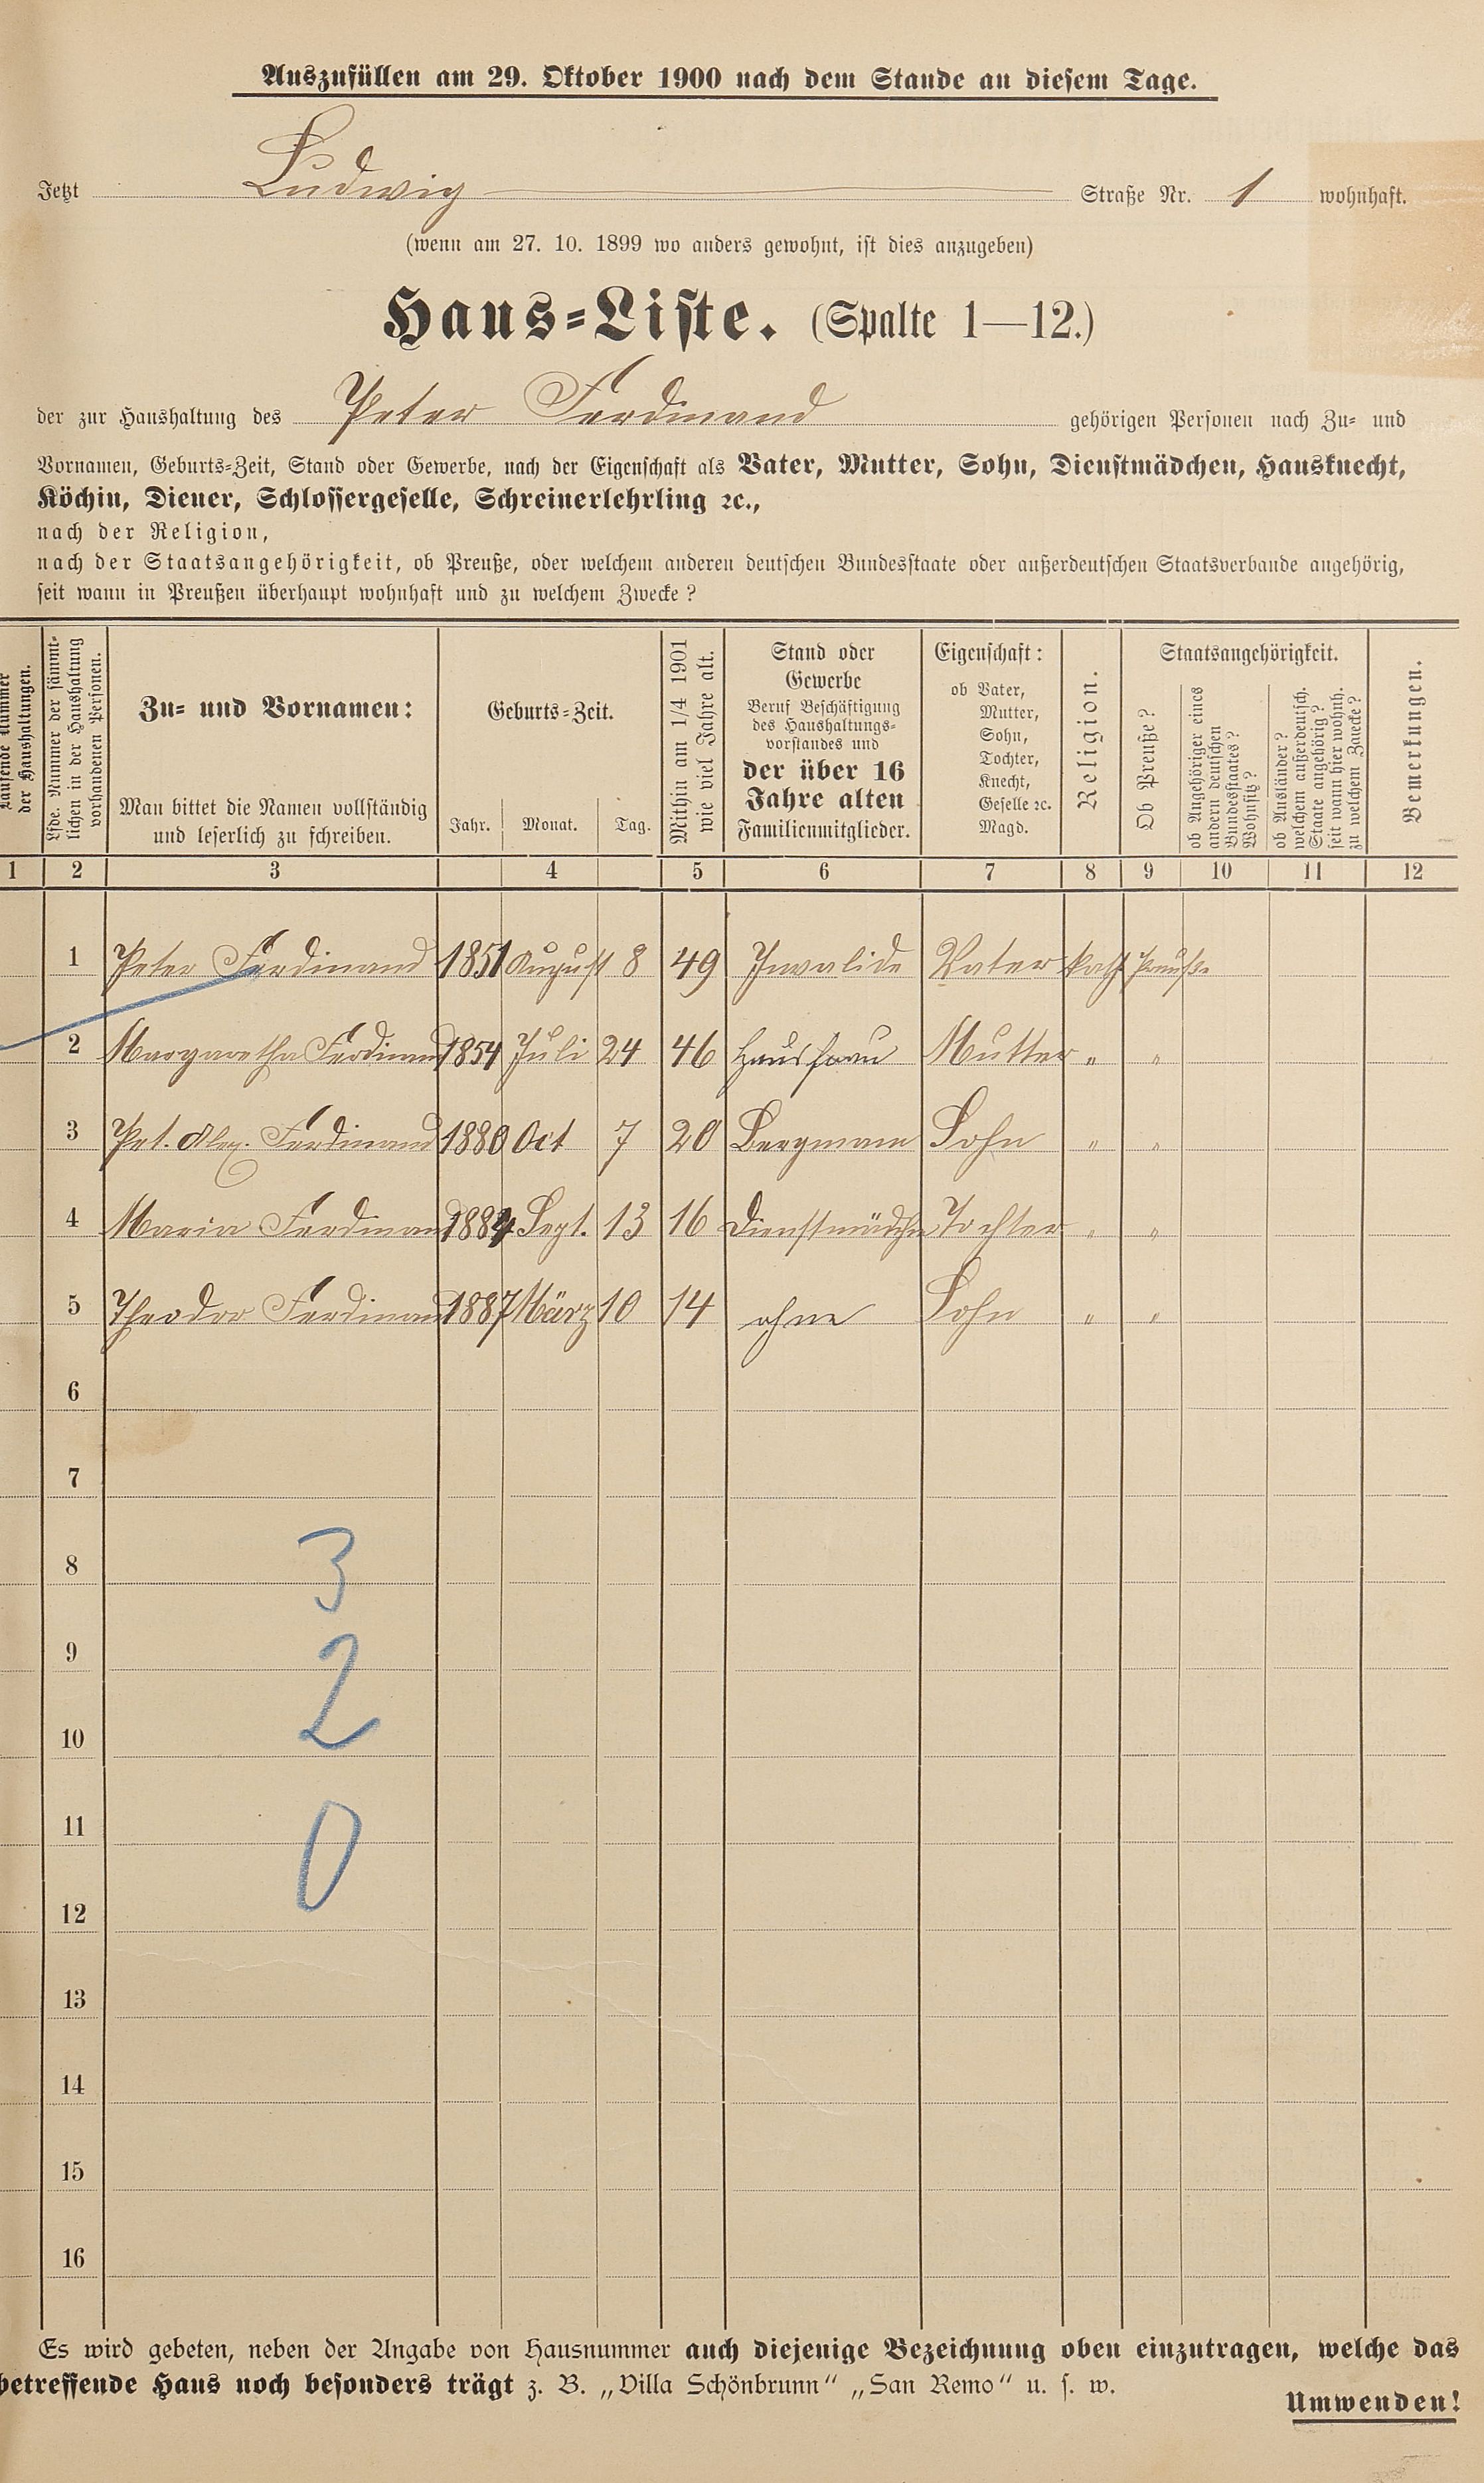 Auszufüllen am 29. Oktober 1900 nach dem Stande an diesem Tage.
Jetzt Ludwig Straße Nr. 1 wohnhaft.
(wenn am 27. 10. 1899 wo anders gewohnt, ist dies anzugeben)
Haus-Liste. (Spalte 1—12.)
der zur Haushaltung des Peter Ferdinand gehörigen Personen nach Zu- und
Vornamen, Geburts-Zeit, Stand oder Gewerbe, nach der Eigenschaft als Vater, Mutter, Sohn, Dienstmädchen, Hausknecht,
Köchin, Diener, Schlossergeselle, Schreinerlehrling ꝛc.,
nach der Religion,
nach der Staatsangehörigkeit, ob Preuße, oder welchem anderen deutschen Bundesstaate oder außerdeutschen Staatsverbande angehörig,
seit wann in Preußen überhaupt wohnhaft und zu welchem Zwecke?
Laufende Nummer
der Haushaltungen.
Lfde. Nummer der sämmt-
lichen in der Haushaltung
vorhandenen Personen.
Zu- und Vornamen:
Man bittet die Namen vollständig
und leserlich zu schreiben.
Geburts-Zeit.
Jahr. Monat. Tag.
Mithin am 1/4 1901
wie viel Jahre alt.
Stand oder
Gewerbe
Beruf Beschäftigung
des Haushaltungs-
vorstandes und
der über 16
Jahre alten
Familienmitglieder.
Eigenschaft:
ob Vater,
Mutter,
Sohn,
Tochter,
Knecht,
Geselle ꝛc.
Magd.
Religion.
Staatsangehörigkeit.
Ob Preuße?
ob Angehöriger eines
andern deutschen
Bundesstaates?
Wohnsitz?
ob Ausländer?
welchem außerdeutsch.
Staate angehörig?
seit wann hier wohnh.
zu welchem Zwecke?
Bemerkungen.
1 2 3 4 5 6 7 8 9 10 11 12
1 Peter Ferdinand 1851 August 8 49 Invalide Vater kath Preuße
2 Margaretha Ferdinand 1854 Juli 24 46 Hausfrau Mutter " "
3 Pet. Alex. Ferdinand 1880 Oct 7 20 Bergmann Sohn " "
4 Maria Ferdinand 1884 Sept. 13 16 Dienstmädchen Tochter " "
5 Theodor Ferdinand 1887 März 10 14 ohne Sohn " "
6
7
8
3
9
2
10
11
0
12
13
14
15
16
Es wird gebeten, neben der Angabe von Hausnummer auch diejenige Bezeichnung oben einzutragen, welche das
betreffende Haus noch besonders trägt z. B. „Villa Schönbrunn“ „San Remo“ u. s. w.
Umwenden!